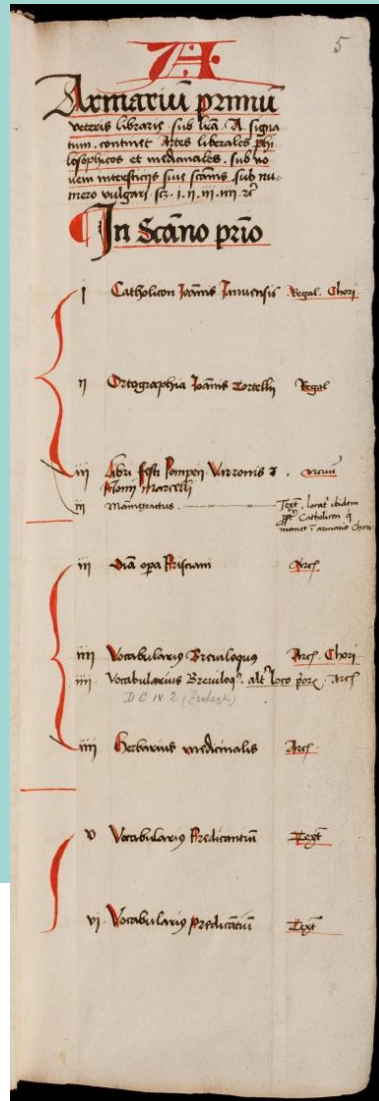 5
A
Armariū primū
veteris librarie sub lrā A signa
tum. continet Artes liberales phi
losophicos et medicinales. sub no
vem intersticijs sive scānis sub nu
mero vulgari scz. i. ii. iii. iiii. zc
In Scāno prīo
i Catholicon Joānis Januensis Regal. Chori
ii Ortographia Joānis Tortellij Regal
iii Libri Festi Pompeij Varronis z
Nonij Marcelli
iii Mamotractus Text. locat ibidem
Catholicon q
manet armario Chori
iii opa Prisciani Arcꝭ
iiii Vocabulariꝰ Breviloquꝰ Arcꝭ. Chori
iiii Vocabularius Breviloqꝰ. loco Arcꝭ
D C IV 2
iiii Herbarius medicinalis Arcꝭ
v Vocabulariꝰ Predicantiū Text
vi Vocabulariꝰ predicātiū Text